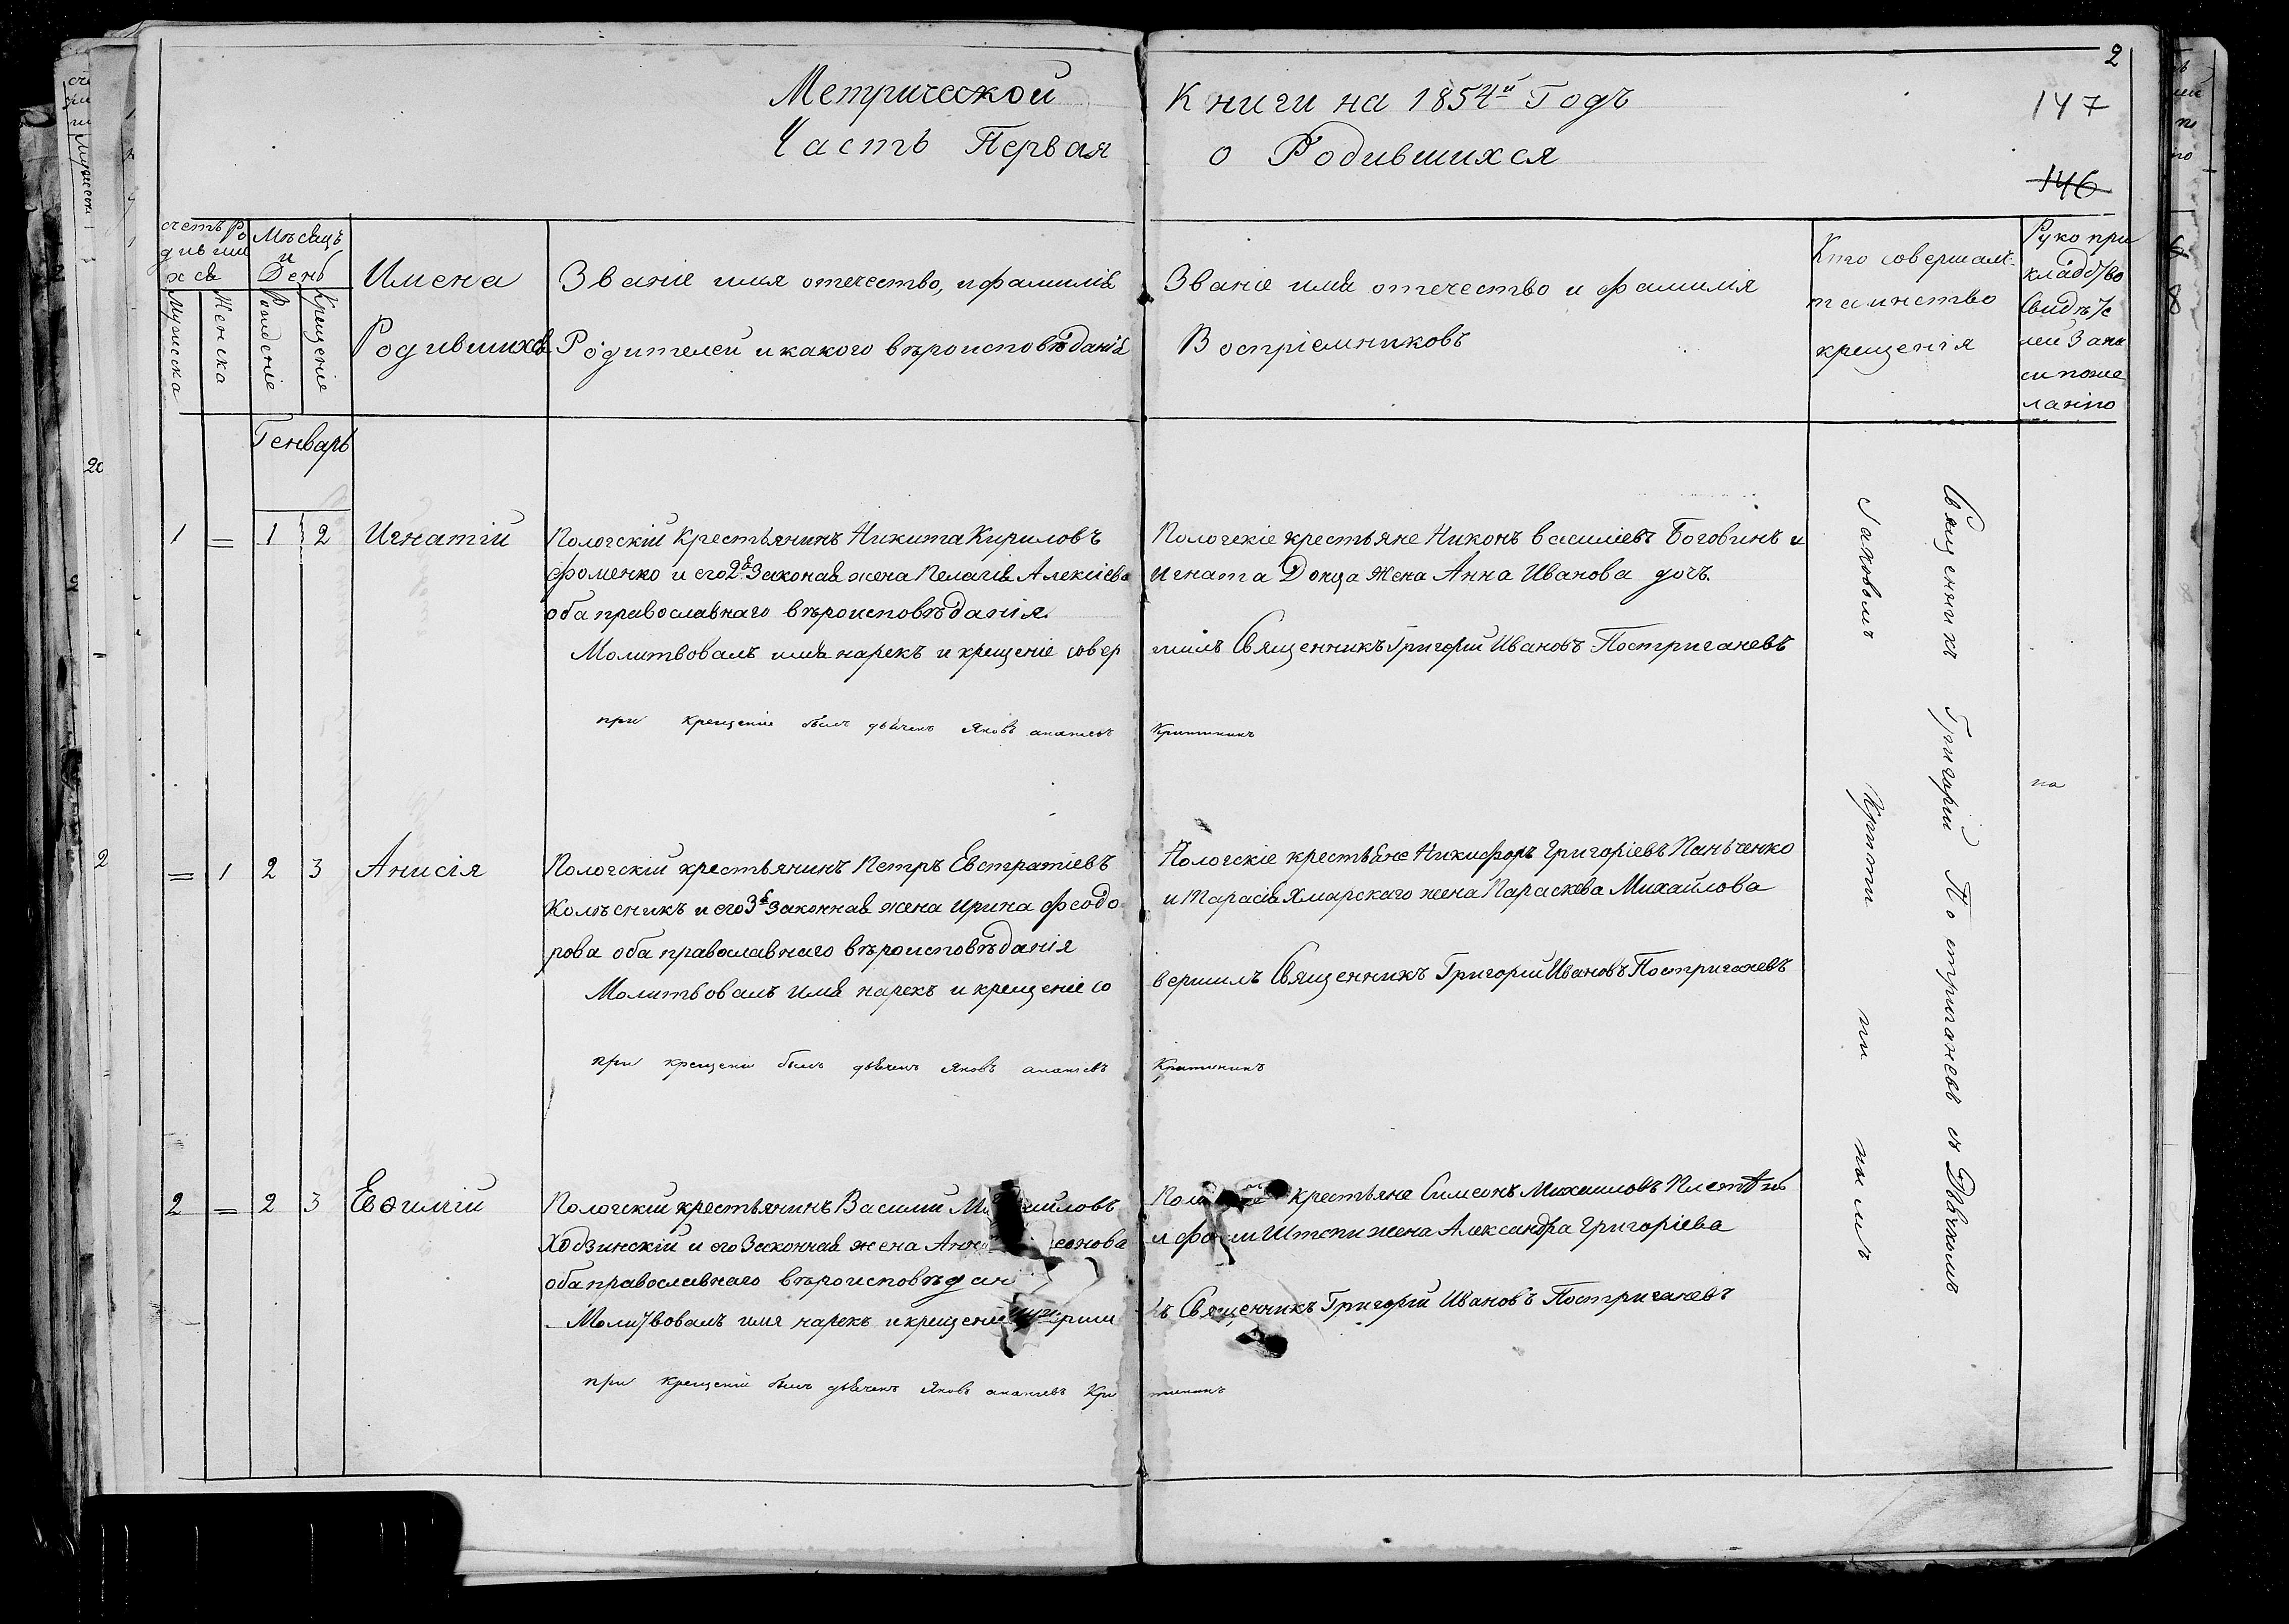 2
Метрической Книги на 1854й Годъ
147
Часть Первая о Родившихся
146
счетъ Родившихся
Мужеска
Женска
Мѣсяцъ и День
Рожденіе
Крещеніе
Имена
Родившихся
Званіе имя отечество, и фамилія
Родителей и какого вѣроисповѣданія
Званіе имя отечество и фамилія
Воспріемниковъ
Кто совершалъ
таинство
крещенія
Рукопри
кладство
Свидѣте
лей Запи
си по же
ланію
Генварь
1 = 1 2 Игнатій
Пологскій Крестьянинъ Никита Кириловъ
Фоменко и его 2я Законая жена Пелагія Алексіева
оба православнаго вѣроисповѣданія
Молитвовалъ имя нарекъ и крещеніе совер
Пологскіе крестьяне Никонъ Василіевъ Боговинъ и
Игната Донца Жена Анна Иванова дочь.
шилъ Священникъ Григорій Ивановъ Постриганевъ
при крещеніи былъ дьячекъ Яковъ ананіевъ Критининъ
= 1 2 3 Анисія
Пологскій крестьянинъ Петръ Евстратіевъ
Колѣсникъ и его 3я Законная жена Ирина Феодо
рова оба православнаго вѣроисповѣданія
Молитвовалъ Имя нарекъ и крещеніе со
Пологскіе крестьяне Никифоръ Григоріевъ Паньченко
и Тарасія Хмарскаго жена Параскева Михайлова
вершилъ Священникъ Григорій Ивановъ Постриганевъ
при крещеніи былъ дьячекъ Яковъ ананіевъ Критининъ
2 = 2 3 Евѳимій
Пологскій крестьянинъ Василій Ми йловъ
Ходзинскій и его Законная жена Анна еонова
оба православнаго вѣроисповѣдані
Молитвовалъ имя нарекъ и крещеніе ерши
Поло крестьяне Симеонъ Михаиловъ
и жена Александра Григоріева
лъ Священникъ Григорій Ивановъ Постриганевъ
при крещеніи былъ дьячекъ Яковъ ананіевъ Кри тининъ
Священникъ Григорій Постриганевъ съ Дьячкомъ
Іаковомъ Крити ни нымъ